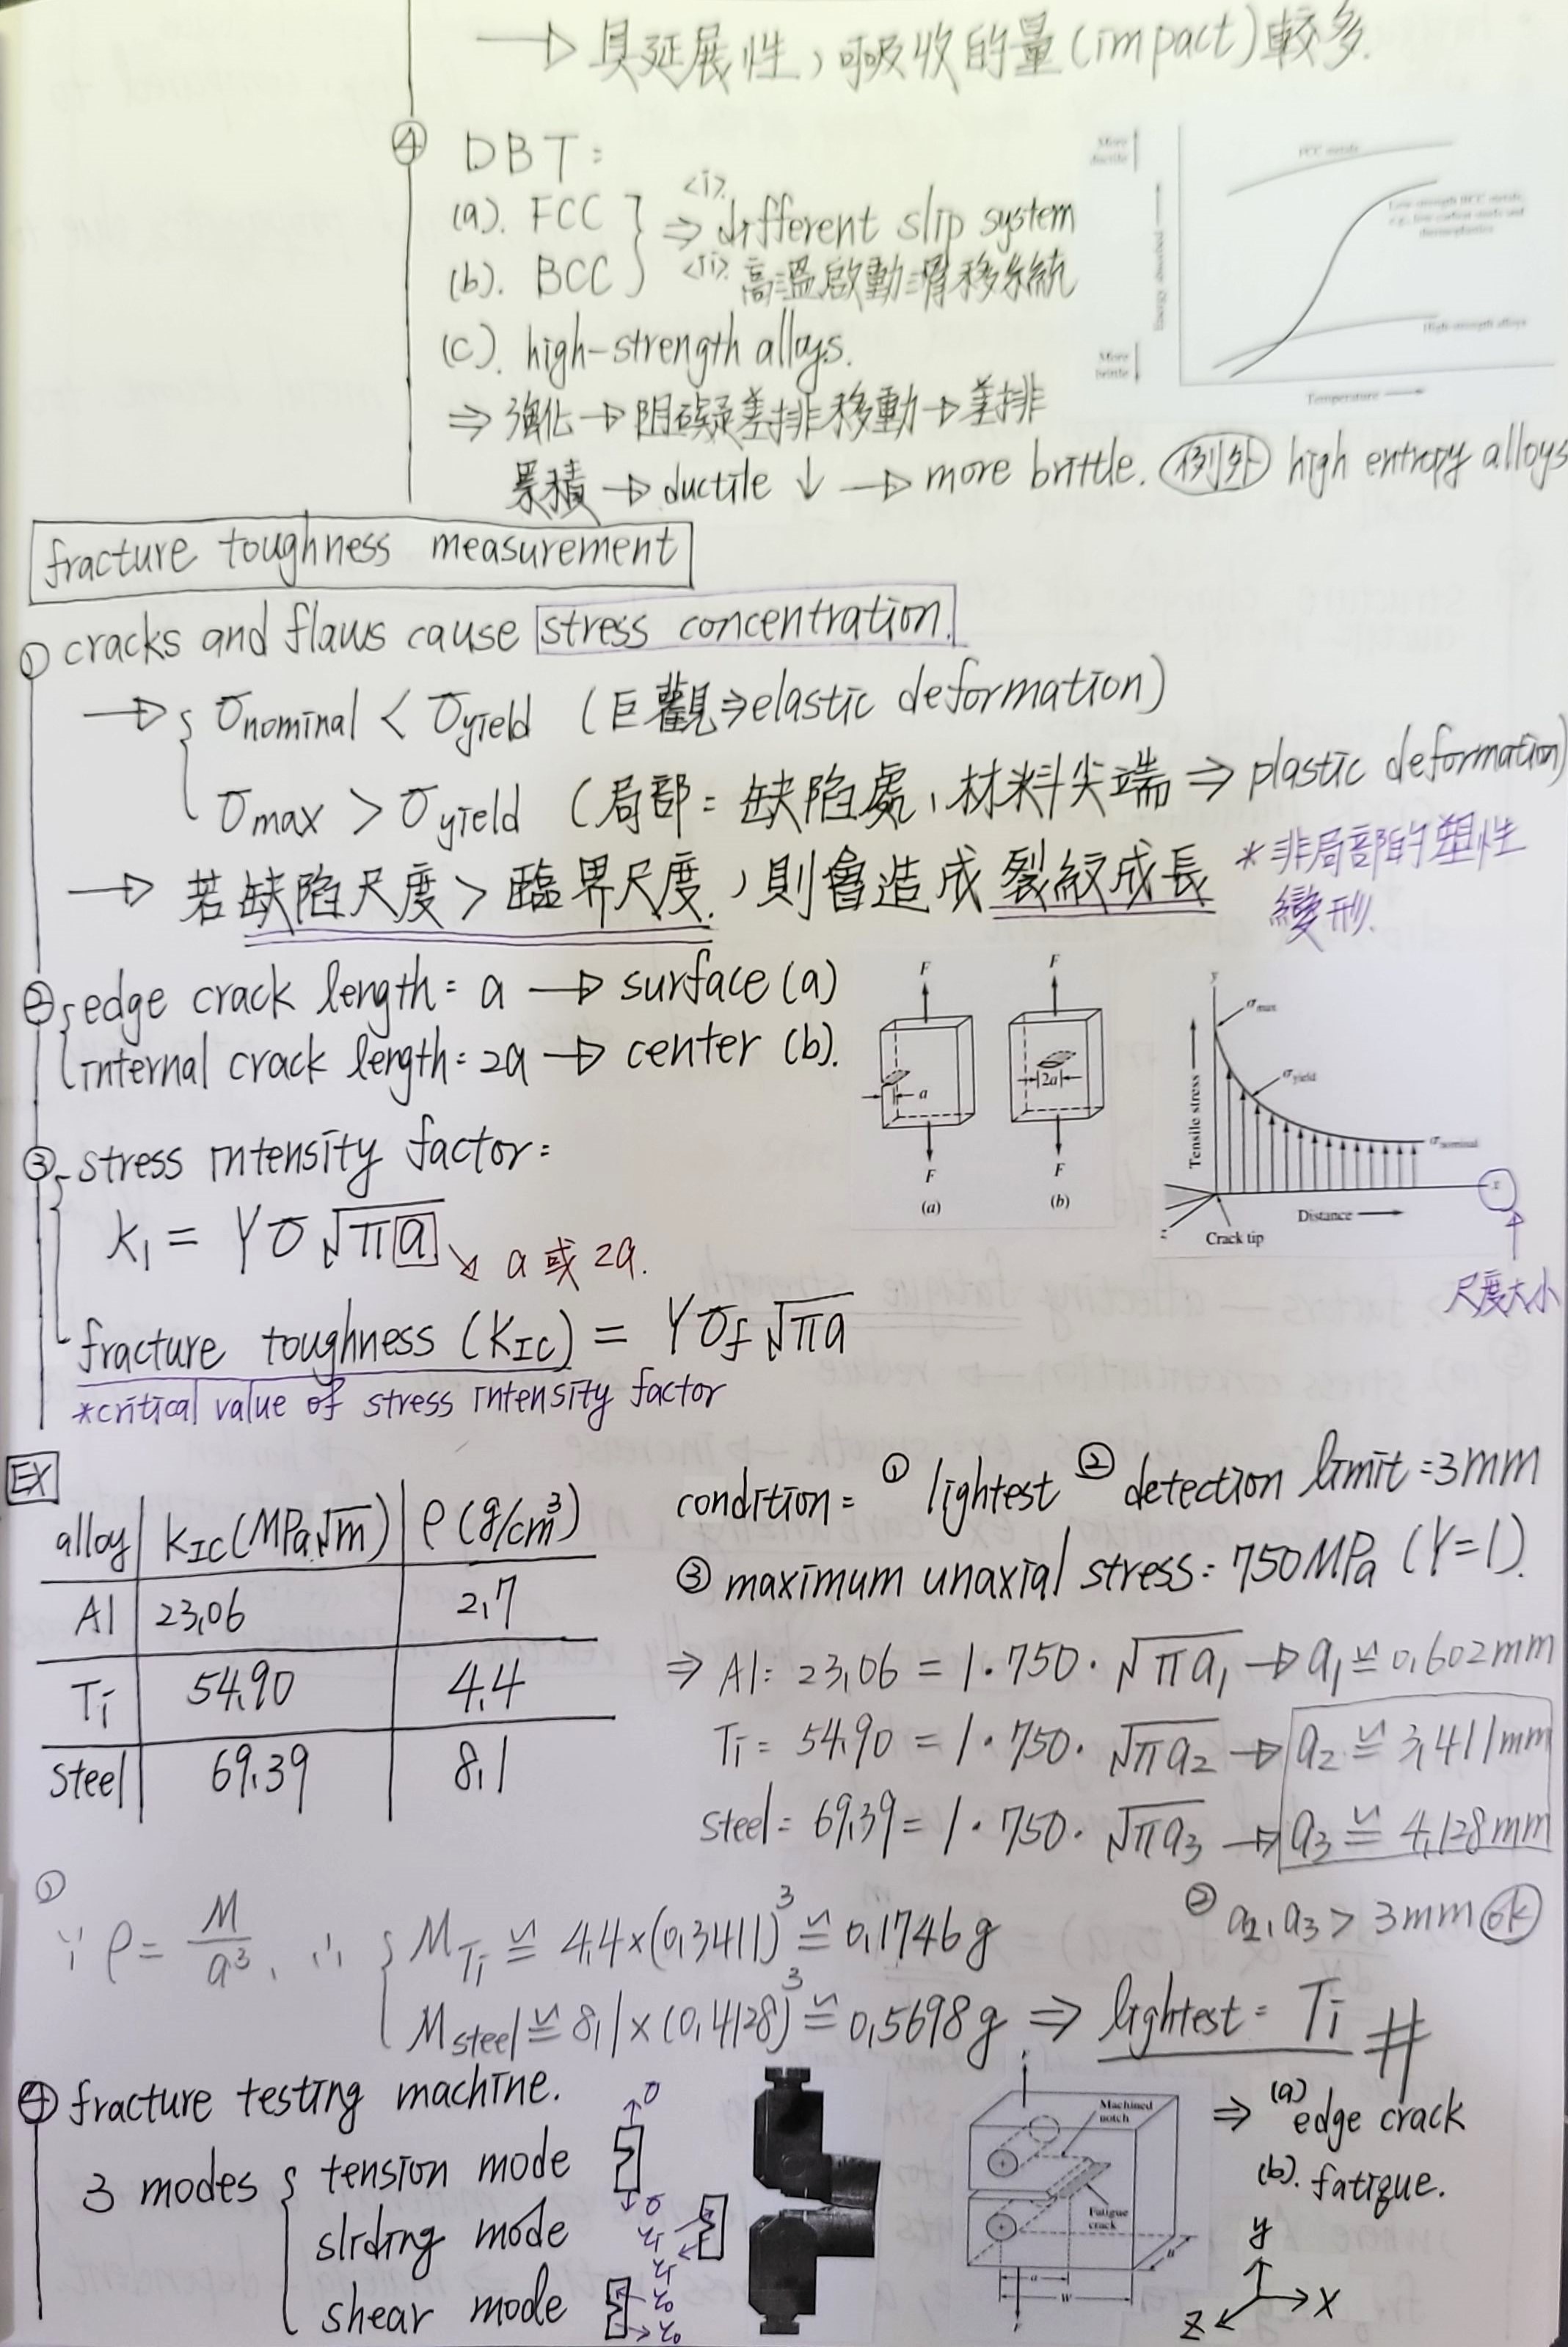 → 具延展性，吸收的量(impact)較多.
④ DBT:
More ductile
FCC metals
(a). FCC
<i>.
⇒ different slip system
(b). BCC
<ii>. 高溫啟動滑移系統
Low-strength BCC metals, e.g., low-carbon steels and thermoplastics
Energy absorbed
(c). high-strength alloys.
High-strength alloys
More brittle
Temperature
⇒ 強化 → 阻礙差排移動 → 差排
累積 → ductile ↓ → more brittle. 例外 high entropy alloys
fracture toughness measurement
① cracks and flaws cause stress concentration.
→ { σnominal < σyield (巨觀⇒elastic deformation)
σmax > σyield (局部: 缺陷處、材料尖端 ⇒ plastic deformation)
→ 若缺陷尺度 > 臨界尺度，則會造成裂紋成長
*非局部的塑性
變形.
② { edge crack length: a → surface (a)
internal crack length: 2a → center (b).
F F
a 2a
F F
(a) (b)
y
σmax
σyield
σnominal
Tensile stress
x
z
Distance
Crack tip
尺度大小
③ stress intensity factor:
K1 = Yσ√πa ↘ a 或 2a.
fracture toughness (KIC) = Yσf√πa
*critical value of stress intensity factor
EX
alloy | KIC(MPa.√m) | ρ(g/cm³)
Al | 23.06 | 2.7
Ti | 54.90 | 4.4
steel | 69.39 | 8.1
condition: ① lightest ② detection limit = 3mm
③ maximum unaxial stress: 750MPa (Y=1).
⇒ Al: 23.06 = 1·750·√πa1 → a1 ≌ 0.602mm
Ti: 54.90 = 1·750·√πa2 → a2 ≌ 3.411mm
steel: 69.39 = 1·750·√πa3 → a3 ≌ 4.128mm
② a2, a3 > 3mm ok
①
∵ ρ = M/a³, ∴ { MTi ≌ 4.4×(0.3411)³ ≌ 0.1746g
Msteel ≌ 8.1×(0.4128)³ ≌ 0.5698g ⇒ lightest = Ti #
④ fracture testing machine.
3 modes { tension mode
sliding mode
shear mode
σ
σ
Machined notch
Fatigue crack
a
w
⇒ (a) edge crack
(b). fatique.
y
x
z